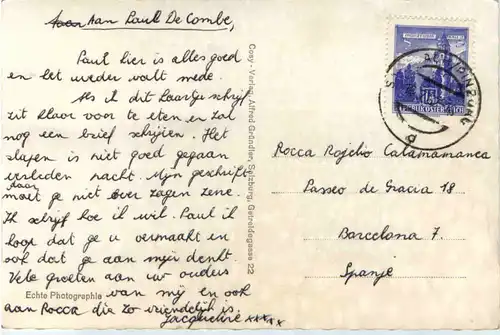 Aan Paul De Combe,
Paul hier is alles goed
en het weder valt mede.
Als ik dit kaartje schrijf
zit klaar voor te eten en zal
nog een brief schrijven. Het
slapen is niet good gegaan
verleden nacht. Mijn geschrift
daar
moet je niet over zagen zene.
Ik schrijf hoe ik wil. Paul ik
hoop dat ge u vermaakt en
ook dat ge aan mij denkt.
Vele groeten aan uw ouders
van mij en ook
aan Rocca die zo vriendelijk is.
Jacqueline xxxxx
Echte Photographie
Cosy-Verlag, Alfred Gründler, Salzburg, Getreidegasse 22
REPUBLIK ÖSTERREICH
Rocca Rogelio Calamamanca
Passeo de Gracia 18
Barcelona 7.
Spanje